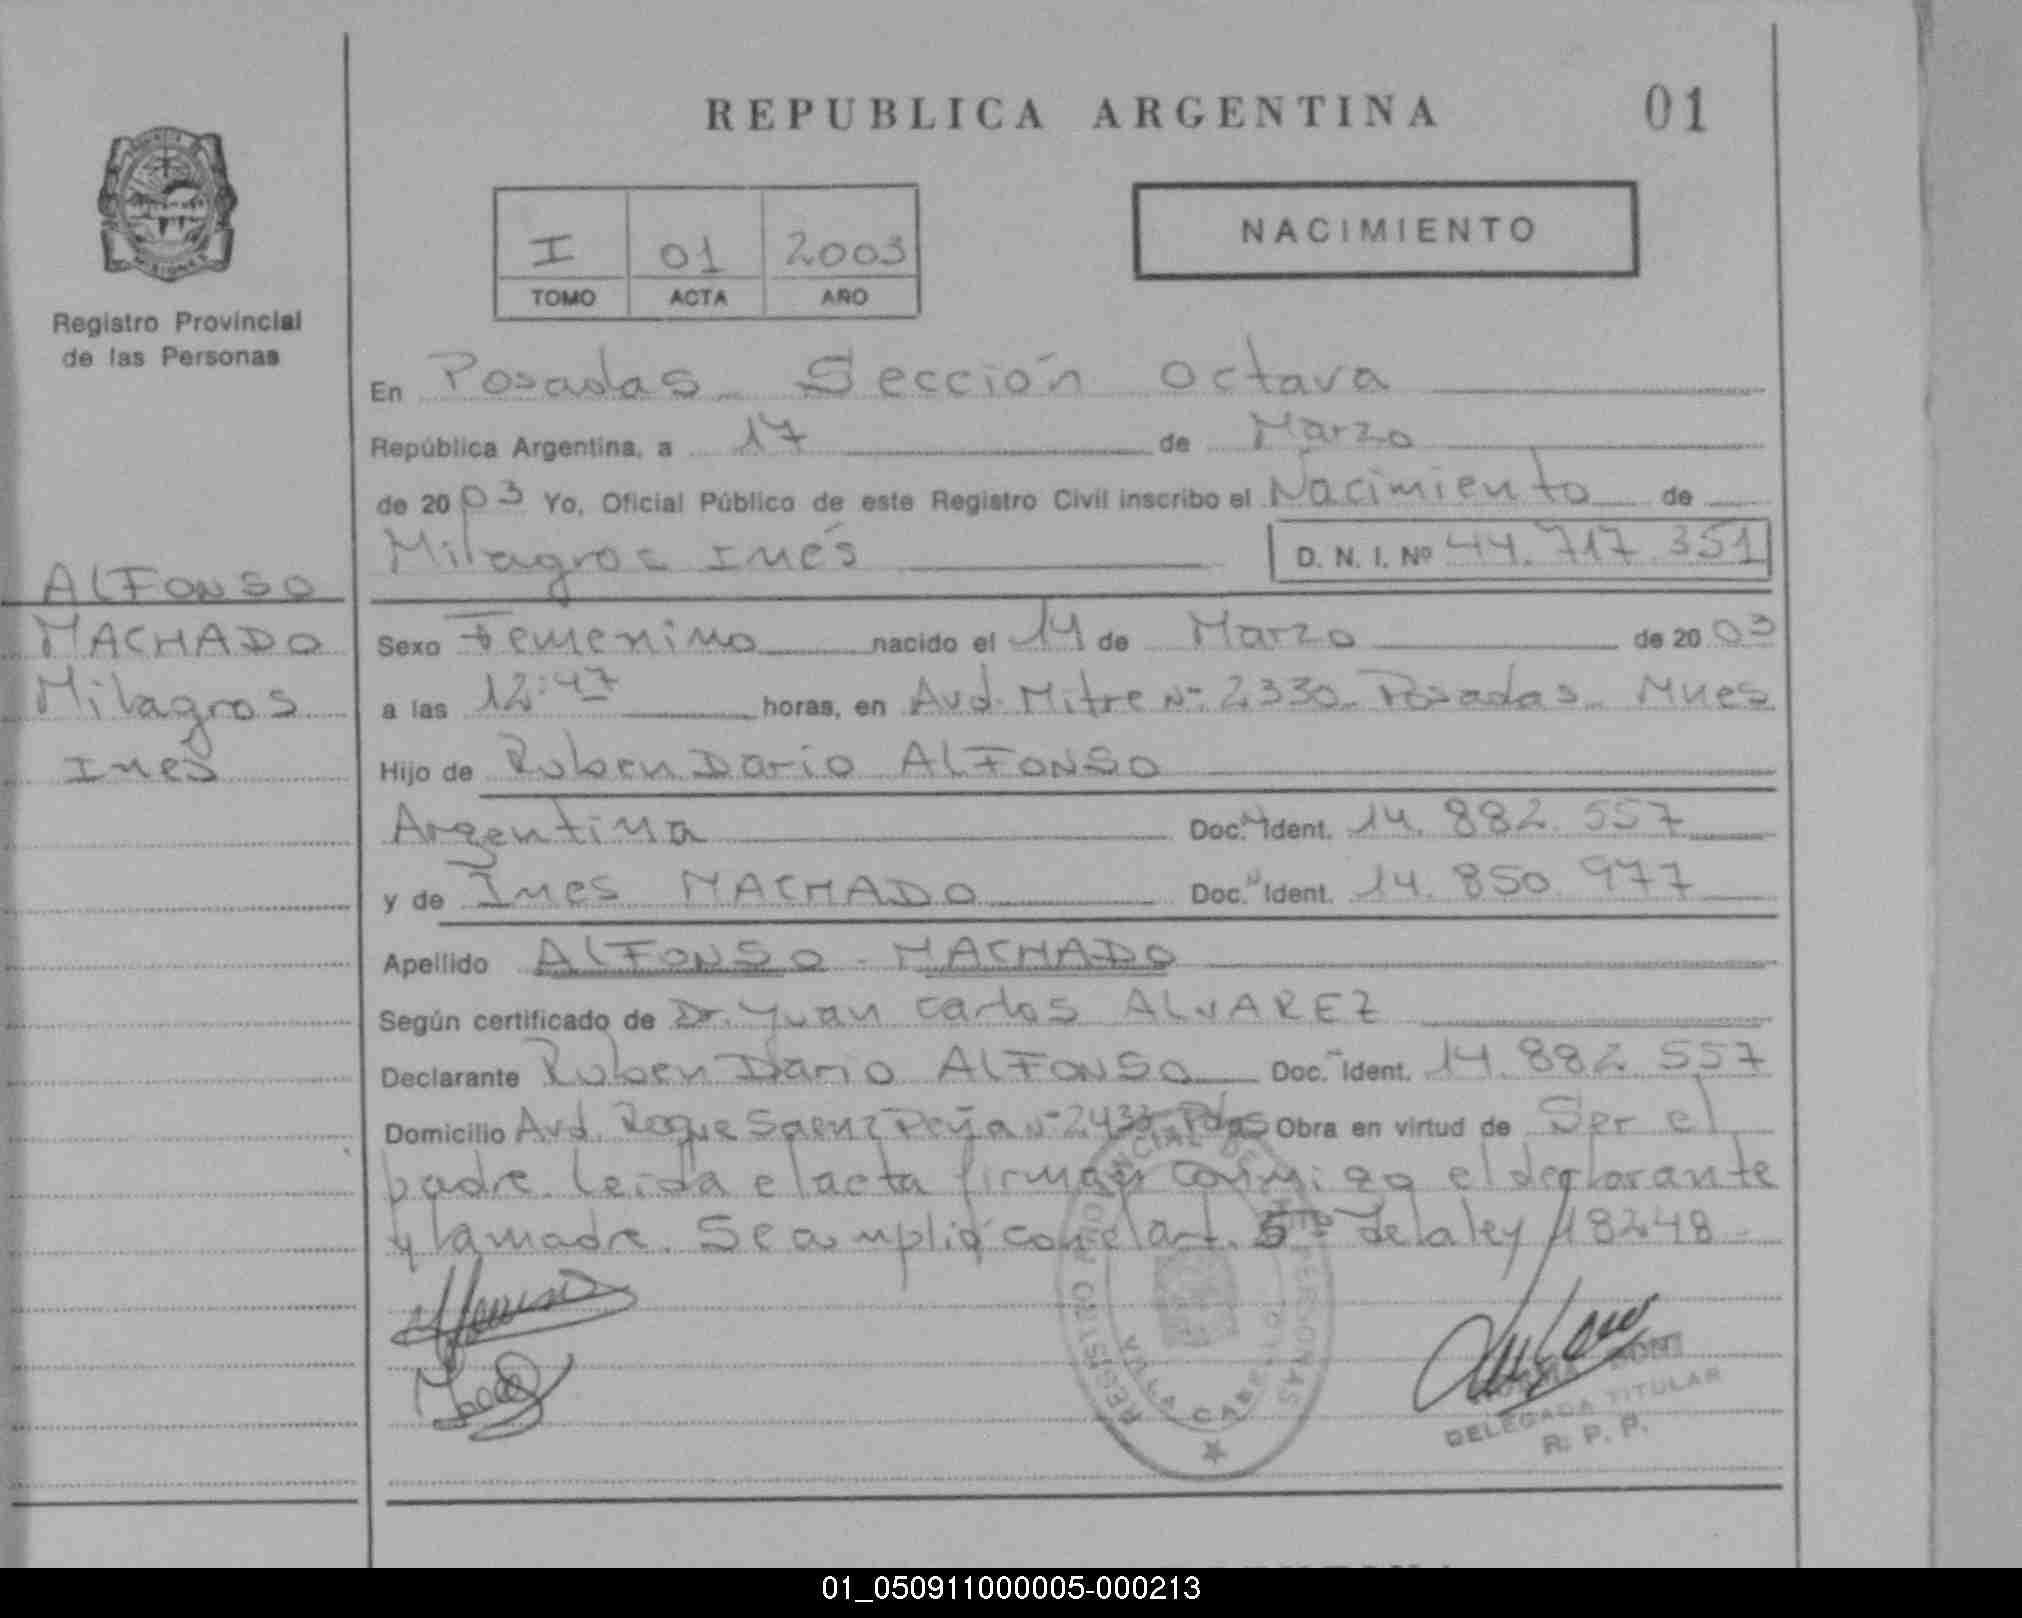 REPUBLICA ARGENTINA 01
NACIMIENTO
I 01 2003
TOMO ACTA AÑO
MISIONES
Registro Provincial
de las Personas
En Posadas - Sección Octava
República Argentina, a 17 de Marzo
de 2003 Yo, Oficial Público de este Registro Civil inscribo el Nacimiento de
Milagros Inés D. N. I. Nº 44.717.351
ALFONSO
MACHADO
Milagros
Inés
Sexo Femenino nacido el 14 de Marzo de 2003
a las 12:47 horas, en Avd. Mitre Nº 2330 - Posadas - Mnes
Hijo de Ruben Dario ALFONSO
Argentina Doc. Ident. 14.882.557
y de Ines MACHADO Doc. Ident. 14.850.977
Apellido ALFONSO - MACHADO
Según certificado de Dr. Juan Carlos ALVAREZ
Declarante Ruben Dario ALFONSO Doc. Ident. 14.882.557
Domicilio Avd. Roque Saenz Peña Nº 2433 - Pdas Obra en virtud de Ser el
padre. Leida el acta firman conmigo el declarante
y la madre. Se cumplió con el art. 5to de la ley 18248 -
REGISTRO PERSONAS
VILLA CABE
DELEGADA TITULAR
R. P. P.
01_050911000005-000213